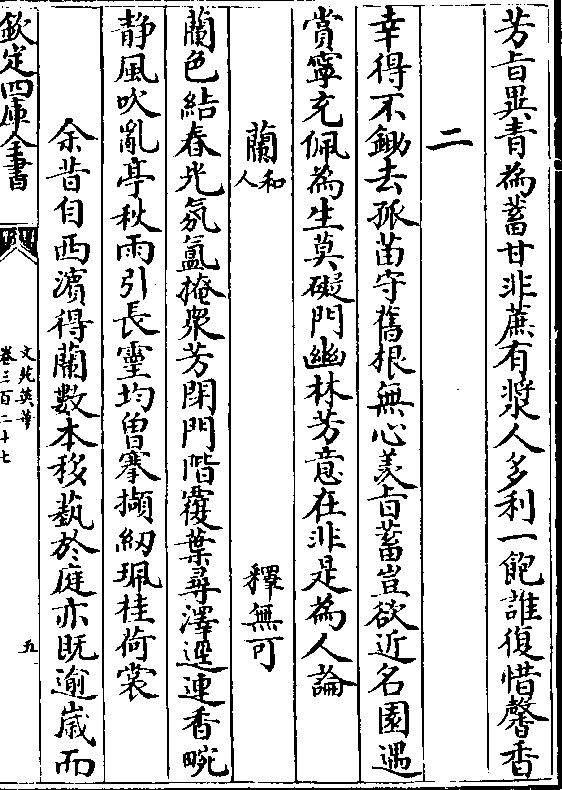 芳旨異青為蓄甘非蔗有漿人多利一飽誰復惜馨香
二
幸得不鋤去孤苗守舊根無心羨旨蓄豈欲近名園遇
賞寧充佩為生莫礙門幽林芳意在非是為人論
蘭和人 釋無可
蘭色結春光氛氲掩衆芳閉門階覆葉尋澤逕連香畹
静風吹亂亭秋雨引長靈均曾搴擷紉珮桂荷裳
余昔自西濵得蘭數本移藝於庭亦既逾嵗而
欽定四庫全書
文苑英華
卷三百二十七
五